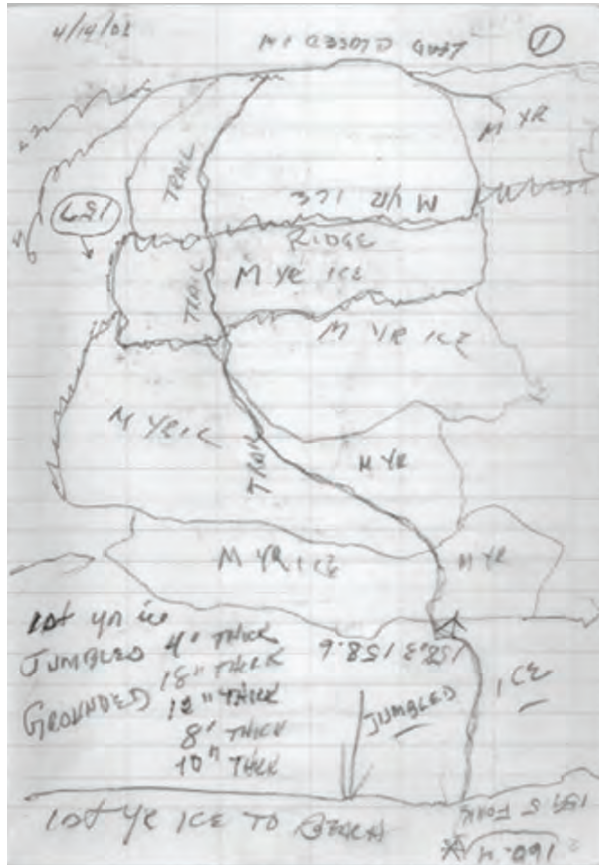 4/14/02
LEAD CLOSED IN
1
M YR
TRAIL
M YR ICE
159
RIDGE
TRAIL
M YR ICE
M YR ICE
M YR IC
TRAIL
M YR
M YR ICE
M YR
1st yr ice
JUMBLED 4" THICK
18" THICK
GROUNDED 12" THICK
8" THICK
10" THICK
158.3 158.6
JUMBLED
ICE
1st YR ICE TO BEACH
159 S FORK
160.4